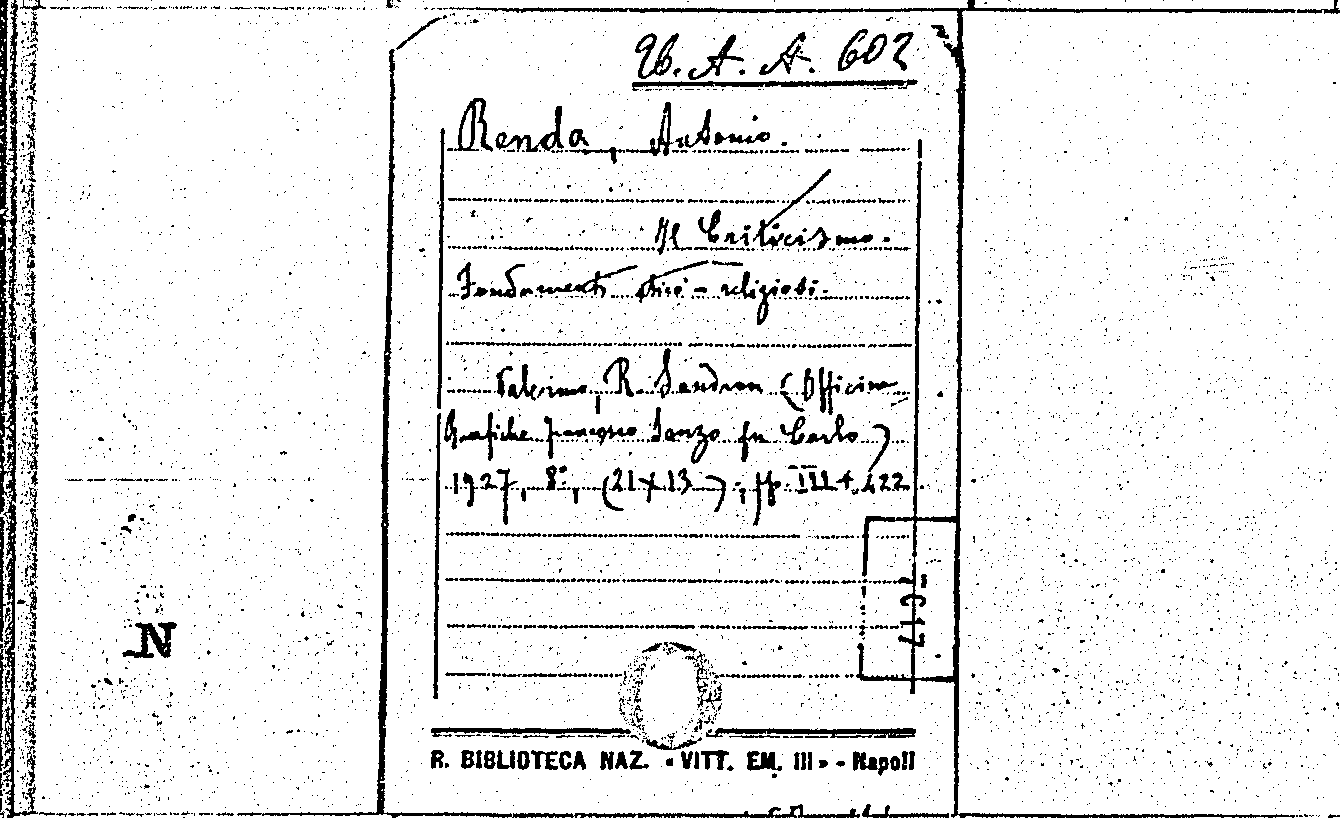 A. A. 602
Renda, Antonio.
Il Criticismo.
Fondamenti etico-religiosi.
Palermo, R. Sandron (Officine
Grafiche Francesco Sanzo fu Carlo)
1927, 8°, (21 x 13); pp. III + 222
- C 17
N
R. BIBLIOTECA NAZ. «VITT. EM. III» - Napoli